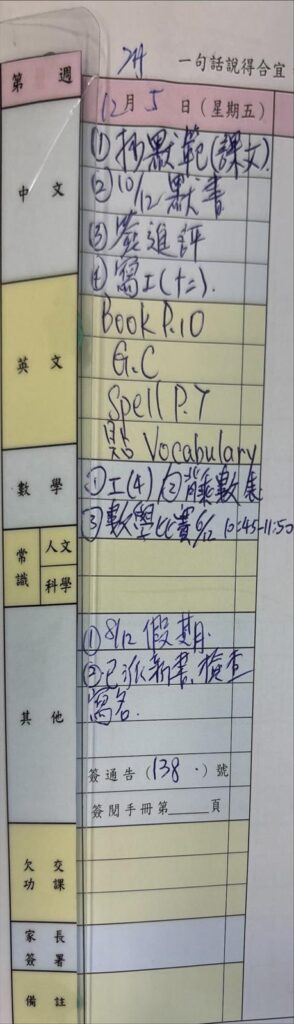 24
一句話說得合宜
第 週
12月 5 日 (星期五)
中 文
(1) 抄默範(課文).
(2) 10/12 默書
(3) 簽進評
(4) 寫工(十二).
英 文
Book P.10
G.C
Spell P.7
貼 Vocabulary
數 學
① 工(4) ② 背乘數表
③ 數學比賽 6/12 10:45-11:50
常識
人文
科學
其 他
① 8/12 假期.
② 已派新書,檢查
寫名.
簽通告 (138 .) 號
簽閱手冊第____頁
欠 交
功 課
家 長
簽 署
備 註